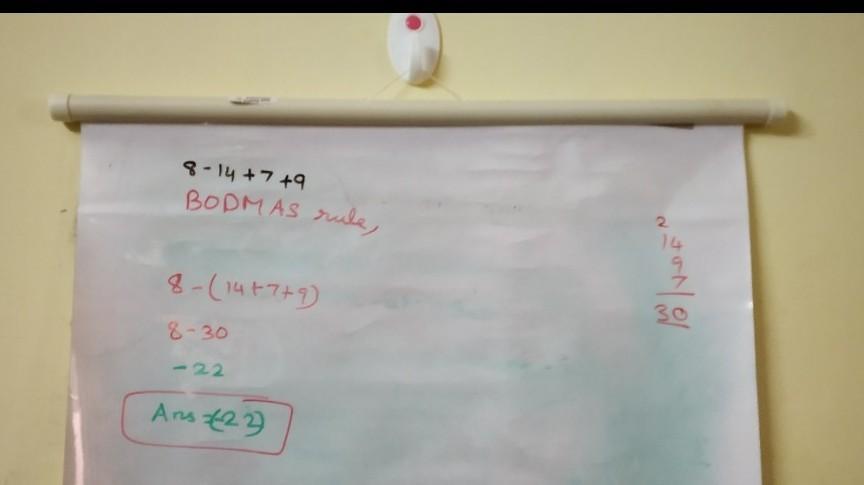 8-14+7+9
BODMAS rule,
8-(14+7+9)
8-30
-22
Ans=(-22)
2
14
9
7
30